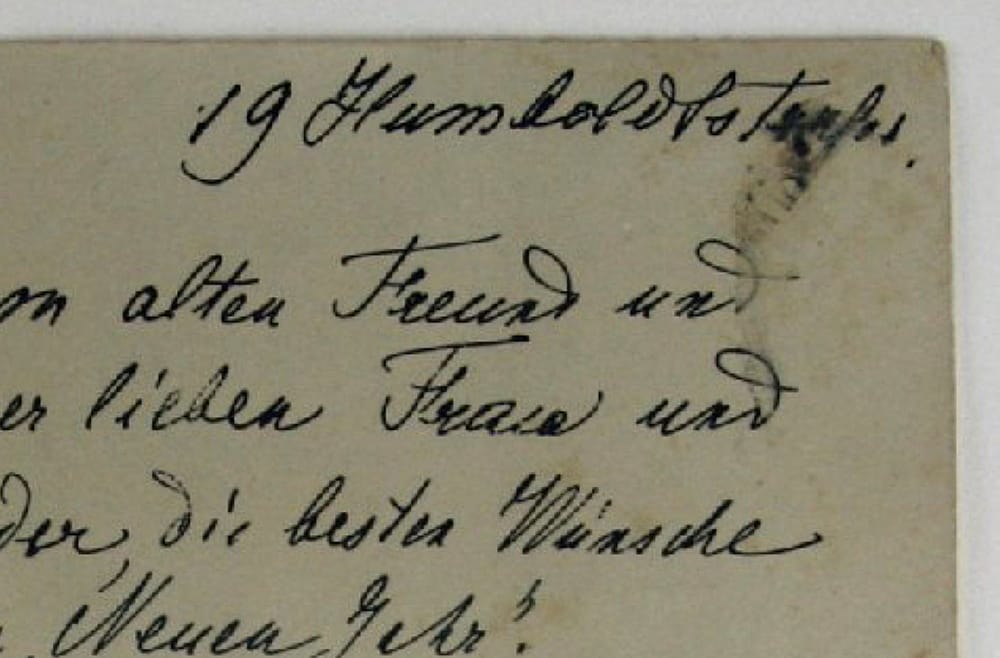 19 Humboldtstraße.
m alten Freund und
er lieben Frau und
der, die besten Wünsche
Neuen Jahr!